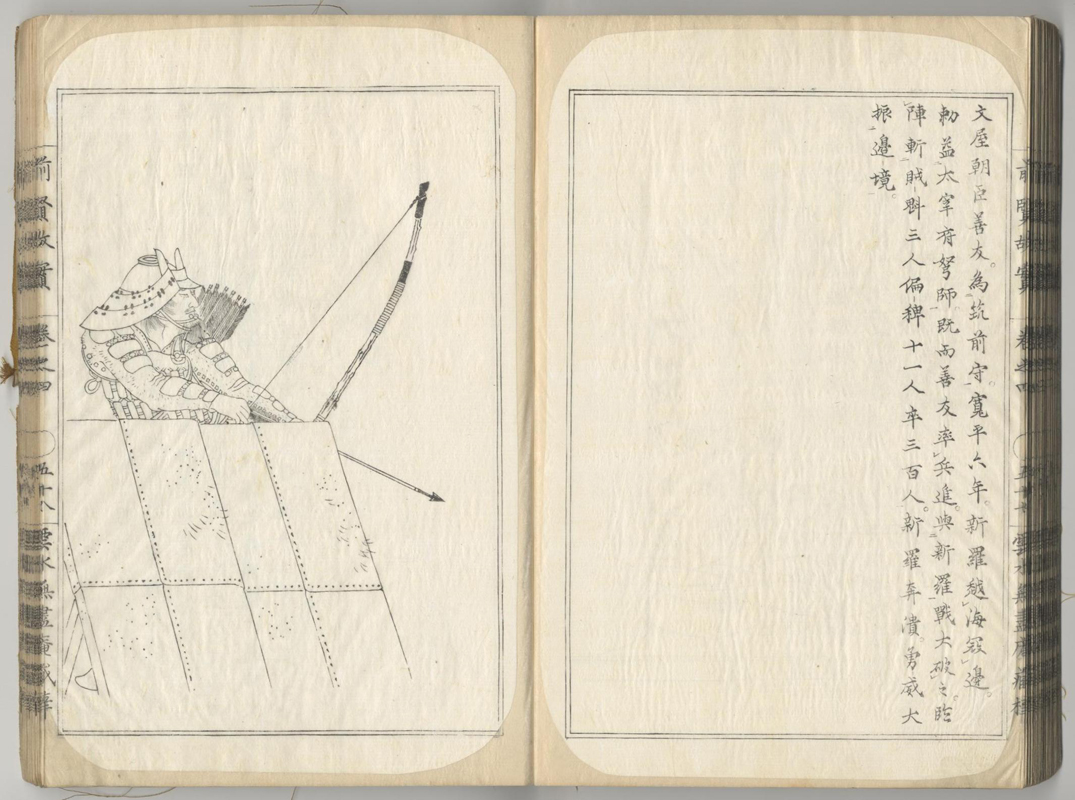 文屋朝臣善友。為筑前守。寛平六年。新羅越海寇邊。
勅益太宰府弩師。既而善友率兵進。與新羅戰大破之。臨
陣斬賊魁三人偏稗十一人卒三百人。新羅奔潰。勇威大
振邊境。
前賢故實 卷之四
前賢故實 卷之四 五十八 雲水無盡庵藏